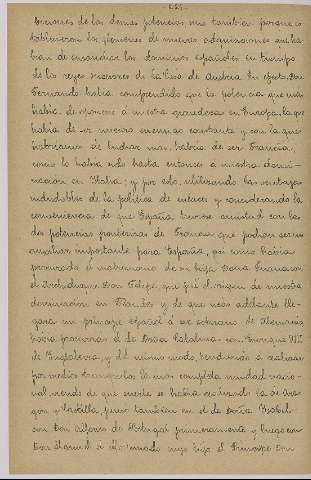 -221-
ciones de las demas potencias sino tambien porque es
tablecieron los gérmenes de nuevas adquisiciones que ha
bian de ensanchar los dominios españoles en tiempo
de los reyes sucesores de la Casa de Austria. En efecto Don
Fernando habia comprendido que la potencia que mas
habia de oponerse a nuestra grandeza en Europa, la que
habia de ser nuestro enemigo constante y con la que
habiamos de luchar mas, habria de ser Francia,
como lo habia sido hasta entonces a nuestra domi-
nacion en Italia; y por esto, utilizando las ventajas
indudables de la politica de enlaces y considerando la
conveniencia de que España tuviese amistad con las
dos potencias fronterizas de Francia que podrian ser
importante para España, asi como habia
procurado el matrimonio de su hija Doña Juana con
el Archiduque Don Felipe que fué el origen de nuestra
dominacion en Flandes y de que mas adelante lle-
gara un principe español á ser soberano de Alemania
habia procurado el de Doña Catalina con Enrique VIII
de Inglaterra, y del mismo modo, tendiendo a realizar
por medios tranquilos la mas completa unidad nacio-
nal, viendo de que suerte se habia realizado la de Ara-
gon y Castilla, puso tambien en el de Doña Isabel
con Don Alfonso de Portugal primeramente y luego con
Don Manuel el Afortunado cuyo hijo el Principe Don